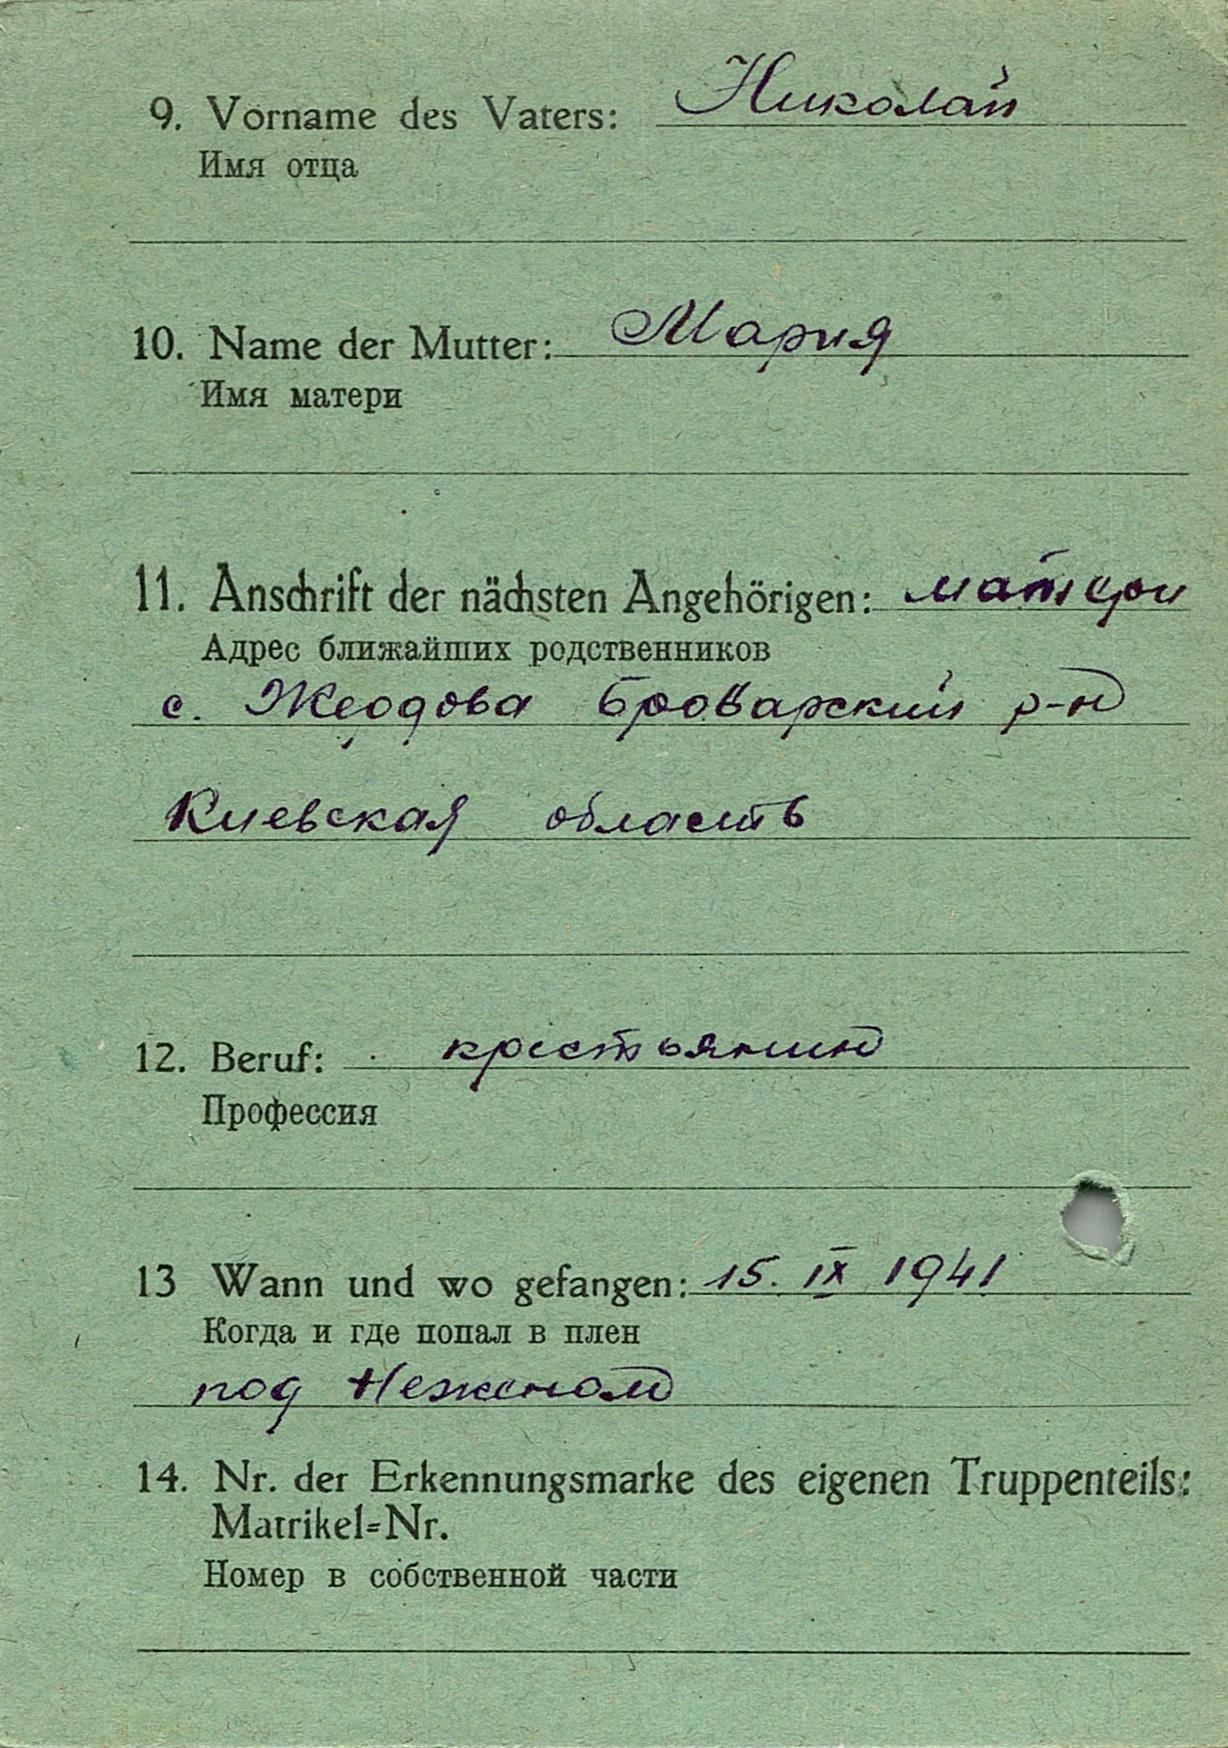 9. Vorname des Vaters: Николай
Имя отца
10. Name der Mutter: Мария
Имя матери
11. Anschrift der nächsten Angehörigen: матери
Адрес ближайших родственников
с. Жердова Броварский р-н
Киевская область
12. Beruf: крестьянин
Профессия
13 Wann und wo gefangen: 15. IX 1941
Когда и где попал в плен
под Неженом
14. Nr. der Erkennungsmarke des eigenen Truppenteils:
Matrikel=Nr.
Номер в собственной части